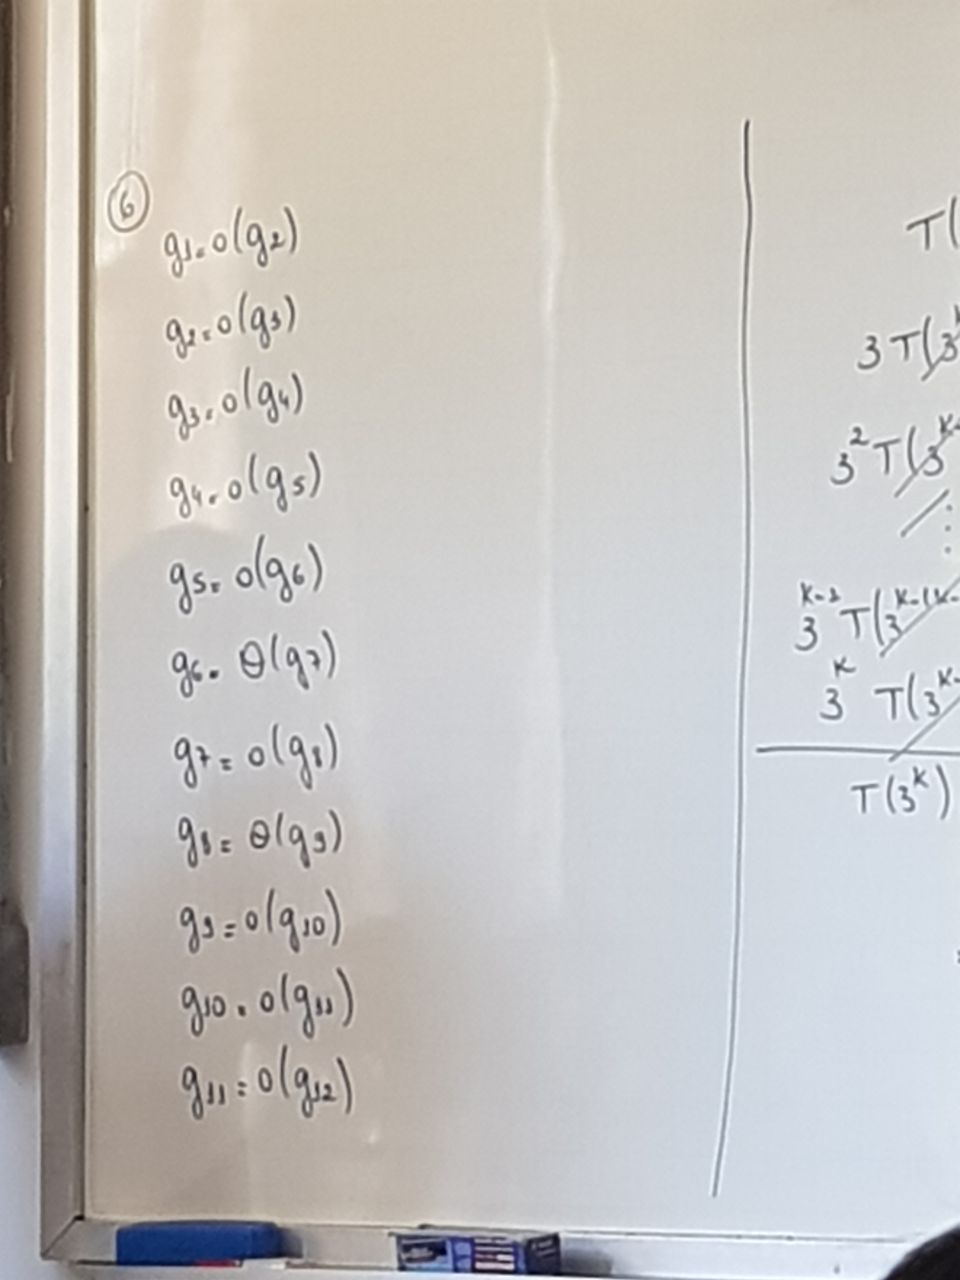 6
g1 = o(g2)
g2 = o(g3)
g3 = o(g4)
g4 = o(g5)
g5 = o(g6)
g6 = Θ(g7)
g7 = o(g8)
g8 = Θ(g9)
g9 = o(g10)
g10 = o(g11)
g11 = o(g12)
T(
3 T(3^k
3^2 T(3^k-
⋮
3^k-1 T(3^k-(k-
3^k T(3^k-
T(3^k)